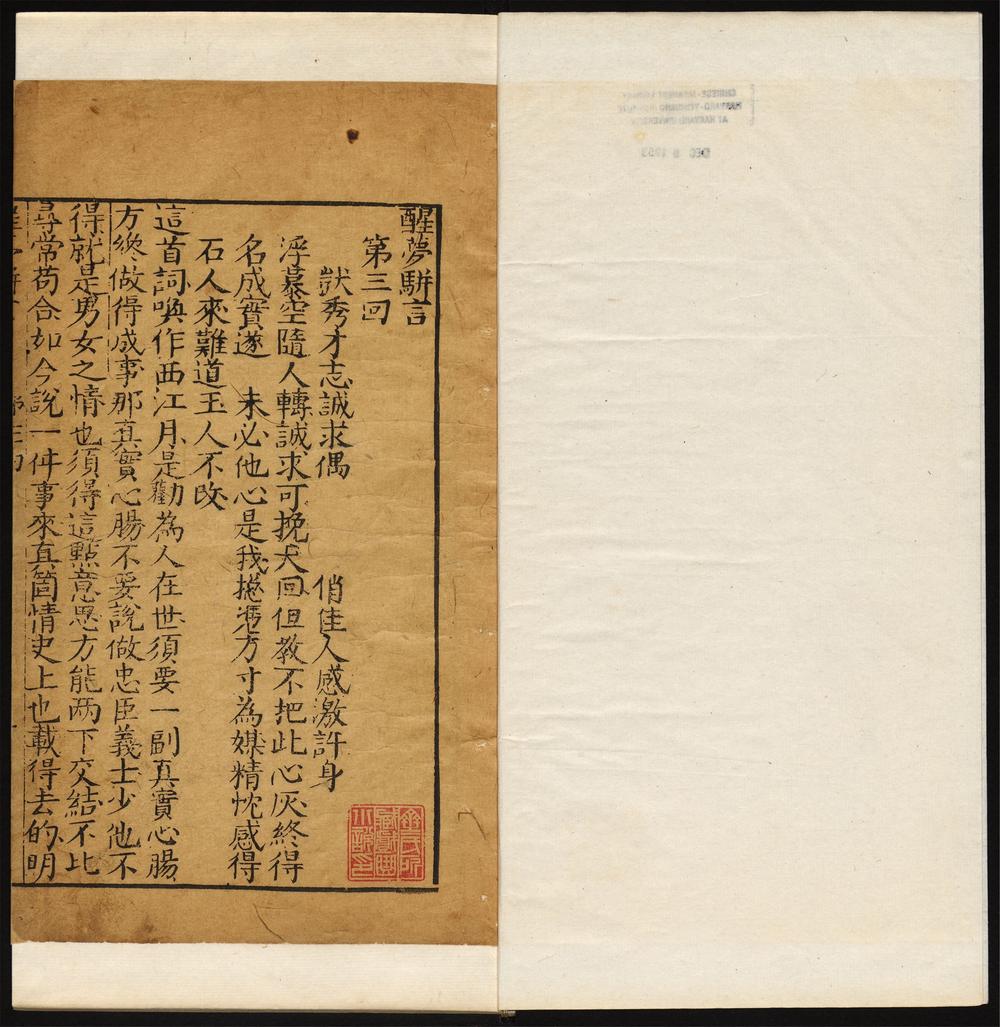 醒夢駢言
第三回
獃秀才志誠求偶 俏佳人感激許身
浮慕空隨人轉誠求可挽天回但教不把此心灰終得
名成實遂 未必他心是我摠憑方寸為媒精忱感得
石人來難道玉人不改
這首詞喚作西江月是勸為人在世須要一副真實心腸
方纔做得成事那真實心腸不要說做忠臣義士少他不
得就是男女之情也須得這點意思方能两下交結不比
尋常苟合如今說一件事來真箇情史上也載得去的明
CHINESE-JAPANESE LIBRARY
HARVARD-YENCHING INSTITUTE
AT HARVARD UNIVERSITY
DEC 1953